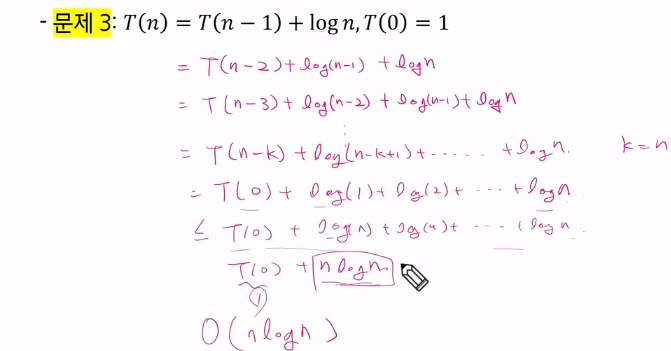 - 문제 3: T(n) = T(n − 1) + log n, T(0) = 1
= T(n-2) + log(n-1) + log n
= T(n-3) + log(n-2) + log(n-1) + log n
⋮
= T(n-k) + log(n-k+1) + ...... + log n. k = n
= T(0) + log(1) + log(2) + ... + log n
≤ T(0) + log(n) + log(n) + ... + log n.
T(0) + n log n
1
O(n log n)